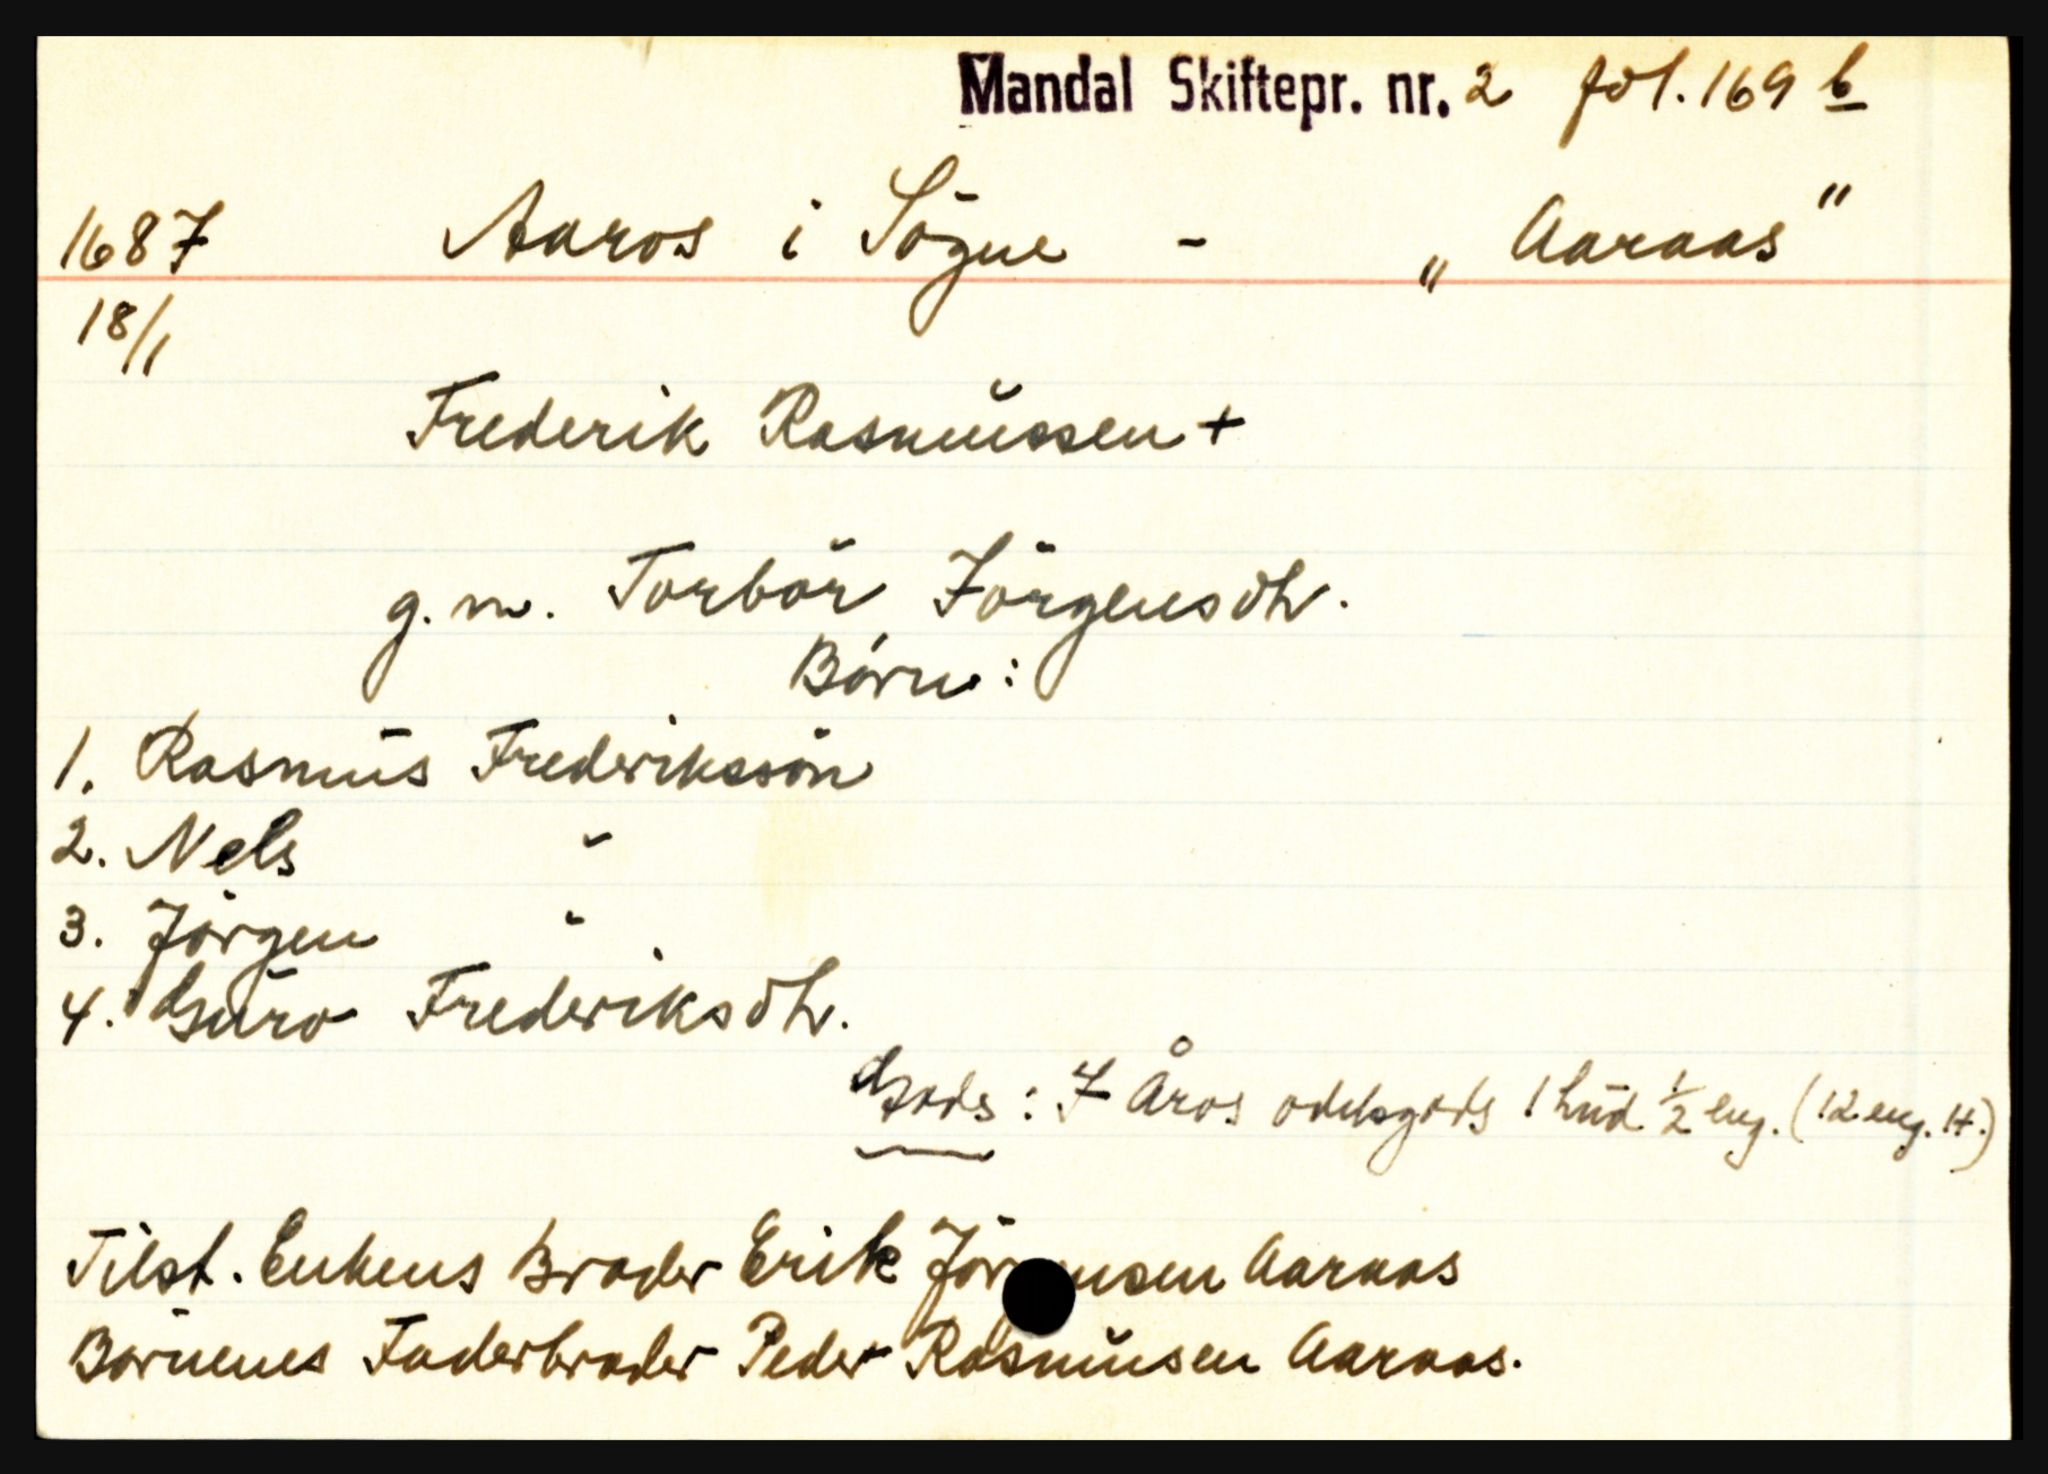 Mandal Skiftepr. nr. 2 fol. 169 b
1687 Aaros i Sögne - „Aaraas"
18/1
Frederik Rasmussen +
g. m. Torbör Jörgensdtr.
Börn:
1. Rasmus Frederikssön
2. Nels "
3. Jörgen "
4. Guro Frederiksdtr.
Gods: I Åros odelsgods 1 hud ½ eng. (12 eng. H.)
Tilst. Enkens Broder Erik Jörgensen Aaraas
Börnenes Faderbroder Peder Rasmusen Aaraas.